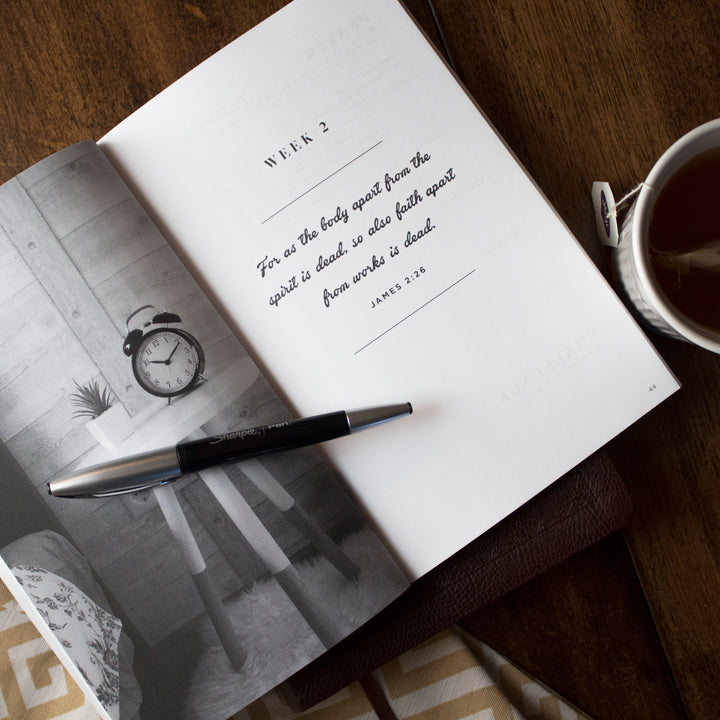 WEEK 2
For as the body apart from the
spirit is dead, so also faith apart
from works is dead.
JAMES 2:26
44
Sharpie. Pen.